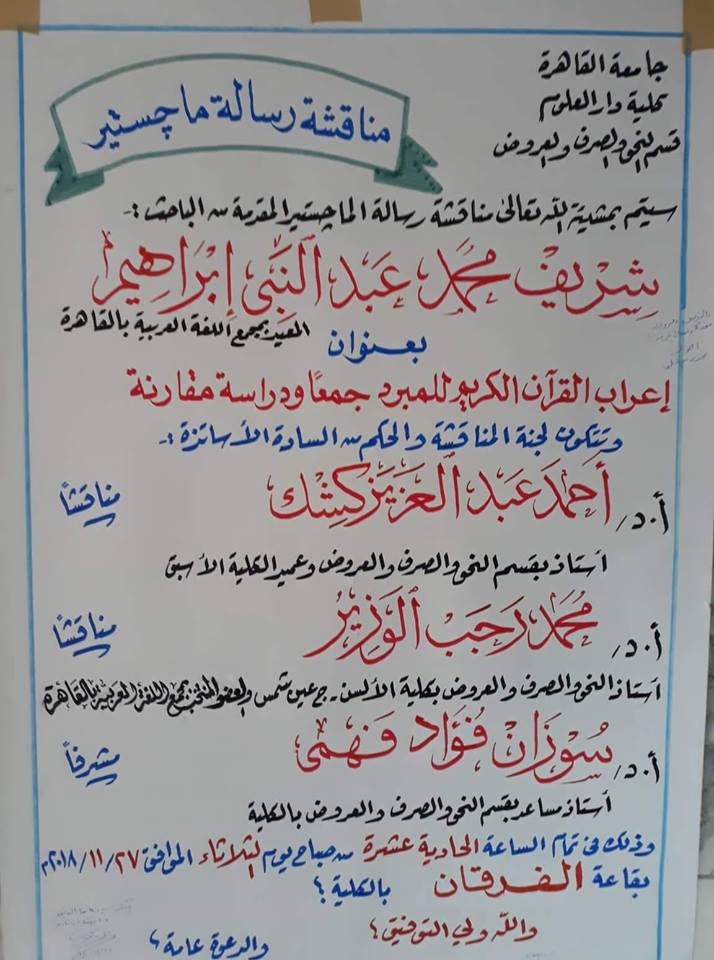 جامعة القاهرة
كلية دار العلوم
قسم النحو والصرف والعروض
مناقشة رسالة ماچستير
سيتم بمشيئة الله تعالى مناقشة رسالة الماچستير المقدمة من الباحث :-
شريف محمد عبد النبي إبراهيم
المعيد بمجمع اللغة العربية بالقاهرة
بعنوان
إعراب القرآن الكريم للمبرد جمعًا ودراسة مقارنة
وتتكون لجنة المناقشة والحكم من السادة الأساتذة :-
أ.د/ أحمد عبد العزيز كشك مناقشًا
أستاذ بقسم النحو والصرف والعروض وعميد الكلية الأسبق
أ.د/ محمد رجب الوزير مناقشًا
أستاذ النحو والصرف والعروض بكلية الألسن - ج عين شمس والعضو المنتخب بمجمع اللغة العربية بالقاهرة
أ.د/ سوزان فؤاد فهمى مشرفًا
أستاذ مساعد بقسم النحو والصرف والعروض بالكلية
وذلك فى تمام الساعة الحادية عشرة من صباح يوم الثلاثاء الموافق ٢٠١٨/١١/٢٧م
بقاعة الفرقان بالكلية ؟
والله ولي التوفيق ؟
والدعوة عامة ؟